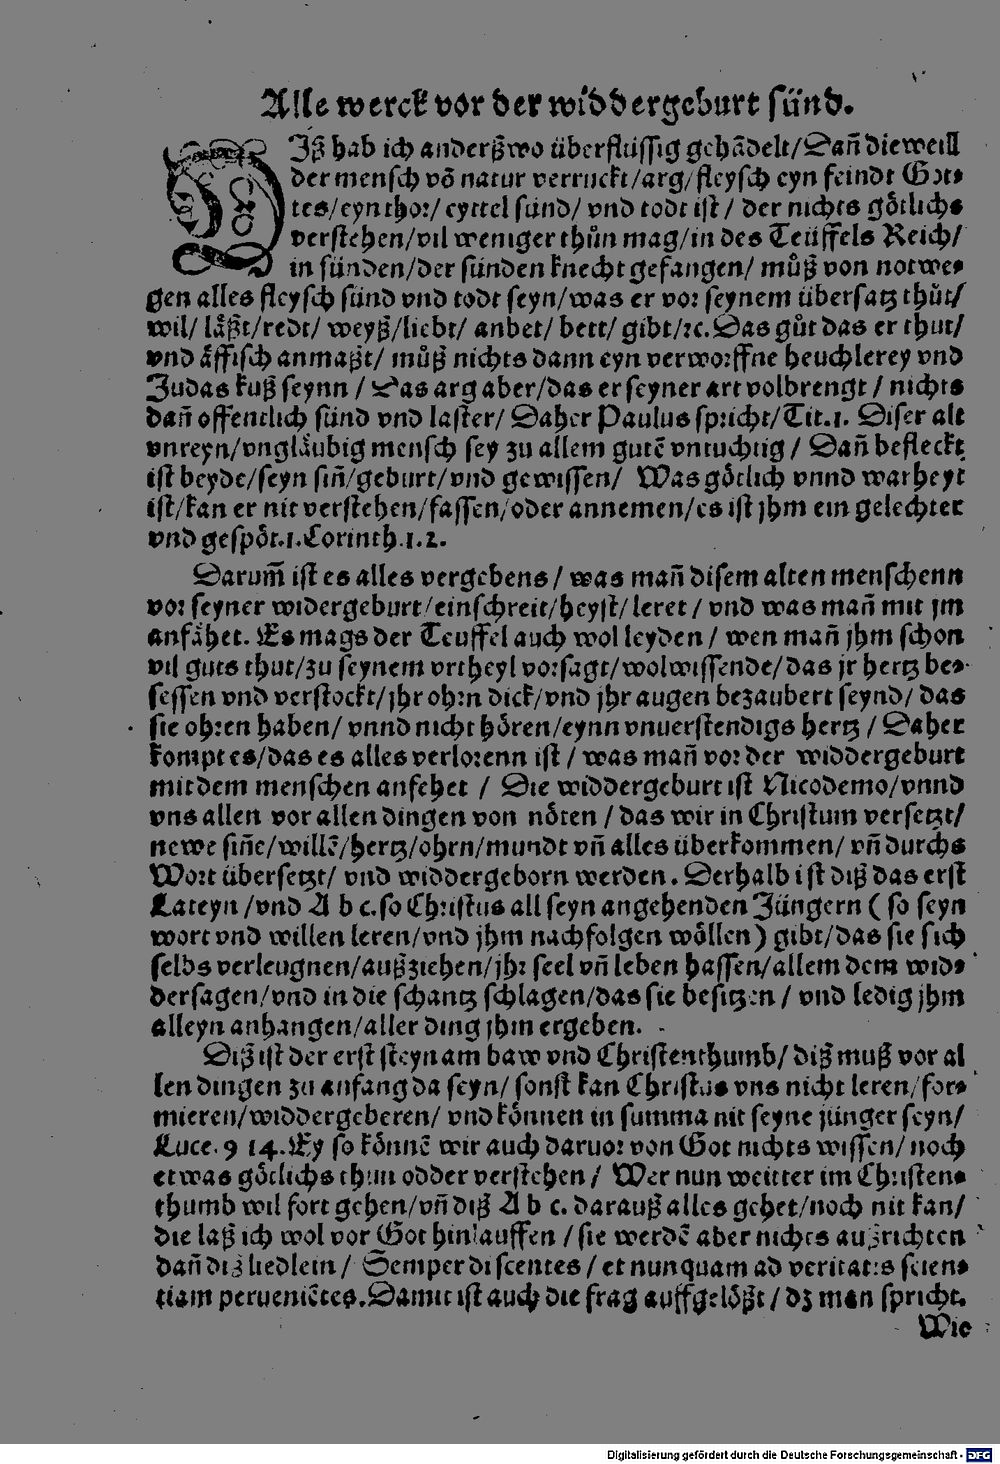 Alle werck vor der widdergeburt sünd.
DIß hab ich anderßwo überflüssig gehãdelt/Dañ dieweill
der mensch võ natur verruckt/arg/fleysch eyn feindt Got⸗
tes/eyn thor/eyttel sünd/ vnd todt ist / der nichts götlichs
verstehen/vil weniger thůn mag/in des Teüffels Reich/
in sünden/der sünden knecht gefangen/ můß von notwe⸗
gen alles fleysch sünd vnd todt seyn/was er vor seynem übersatz thůt/
wil/ läßt/redt/ weyß/liebt/ anbet/ bett/ gibt/ꝛc. Das gůt das er thut/
vnd äffisch anmaßt/ můß nichts dann eyn verworffne heuchlerey vnd
Judas kuß seynn / Das arg aber/das er seyner art volbrengt / nichts
dañ offentlich sünd vnd laster/ Daher Paulus spricht/Tit.1. Diser alt
vnreyn/vngläubig mensch sey zu allem gutẽ vntuchtig / Dañ befleckt
ist beyde/seyn siñ/geburt/vnd gewissen/ Was götlich vnnd warheyt
ist/kan er nit verstehen/fassen/oder annemen/es ist jhm ein gelechter
vnd gespöt.1.Corinth.1.2.
Darum̃ ist es alles vergebens / was mañ disem alten menschenn
vor seyner widergeburt/einschreit/heyst/leret / vnd was mañ mit jm
anfähet. Es mags der Teuffel auch wol leyden / wen mañ jhm schon
vil guts thut/zu seynem vrtheyl vorsagt/wolwissende/das jr hertz be⸗
sessen vnd verstockt/jhr ohrn dick/vnd jhr augen bezaubert seynd/ das
sie ohren haben/ vnnd nicht hören/eynn vnuerstendigs hertz / Daher
kompt es/das es alles verlorenn ist / was mañ vor der widdergeburt
mit dem menschen anfehet / Die widdergeburt ist Nicodemo/vnnd
vns allen vor allen dingen von nöten / das wir in Christum versetzt/
newe siñe/willẽ/hertz/ohrn/mundt vñ alles überkommen/ vñ durchs
Wort übersetzt/ vnd widdergeborn werden. Derhalb ist diß das erst
Lateyn /vnd A b c. so Christus all seyn angehenden Jüngern ( so seyn
wort vnd willen leren/vnd jhm nachfolgen wöllen ) gibt/das sie sich
selbs verleugnen/außziehen/jhr seel vñ leben hassen/allem dem wid⸗
dersagen/vnd in die schantz schlagen/das sie besitzen / vnd ledig jhm
alleyn anhangen/aller ding jhm ergeben.
Diß ist der erst steyn am baw vnd Christenthumb/ diß muß vor al
len dingen zu anfang da seyn/ sonst kan Christus vns nicht leren/for⸗
mieren/widdergeberen/ vnd können in summa nit seyne jünger seyn/
Luce. 9 14. Ey so könnẽ wir auch daruor von Got nichts wissen/ noch
etwas götlichs thun odder verstehen / Wer nun weitter im Christen⸗
thumb wil fort gehen/vñ diß A b c. darauß alles gehet/noch nit kan/
die laß ich wol vor Got hinlauffen / sie werdẽ aber nichts außrichten
dañ diz liedlein / Semper discentes / et nunquam ad veritatis scien⸗
tiam peruenietes. Damit ist auch die frag auffgelößt / dz man spricht.
Wie
Digitalisierung gefördert durch die Deutsche Forschungsgemeinschaft - DFG